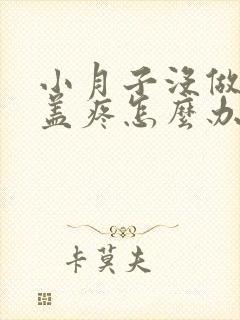 小月子没做
盖疼怎麽办
卡莫夫